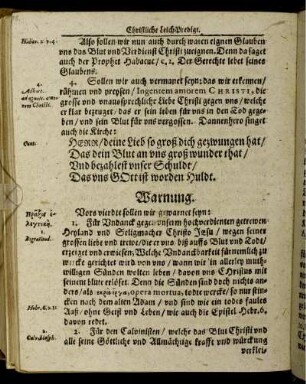 Christliche LeichPredigt.
Habac. 2. v. 4.
Also sollen wir nun auch durch waren eignen Glauben
vns das Blut vnd Verdienst Christi zueignen. Denn da saget
auch der Prophet Habacuc / c. 2. Der Gerechte lebet seines
Glaubens.
4.
4. Sollen wir auch vermanet seyn: das wir erkennen /
rühmen vnd preysen / Ingentem amorem CHRISTI, die
grosse vnd vnaussprechliche Liebe Christi gegen vns / welche
er klar bezeuget / das er sein leben für vns in den Tod gege-
ben / vnd sein Blut für vns vergossen. Dannenhero singet
auch die Kirche:
HERR / deine Lieb so groß dich gezwungen hat /
Das dein Blut an vns groß wunder that /
Vnd bezahlest vnser Schulde /
Das vns GOtt ist worden Huldt.
Warnung.
Vors vierdte sollen wir gewarnet seyn:
1.
1. Für Vndanck gegen vnserm hochverdienten getrewen
Heyland vnd Seligmacher Christo Jesu / wegen seiner
grossen liebe vnd trewe / die er vns biß auffs Blut vnd Todt /
erzeiget vnd erwiesen. Welche Vndanckbarkeit fürnemlich zu
wercke gerichtet wird von vns / wann wir in allerley muth-
willigen Sünden wolten leben / davon vns Christus mit
seinem blute erlöset. Denn die Sünden sind doch nichts an-
ders / als opera mortua, todte wercke / so nur kom-
men nach dem alten Adam / vnd sind wie ein todes faules
Aaß / ohne Geist vnd Leben / wie auch die Epistel Hebr. 6.
davon redet.
Hebr. 6. v. 1.
2.
2. Für den Calvinisten / welche das Blut Christi vnd
alle seine Göttliche vnd Allmächtige krafft vnd würckung
verklei-